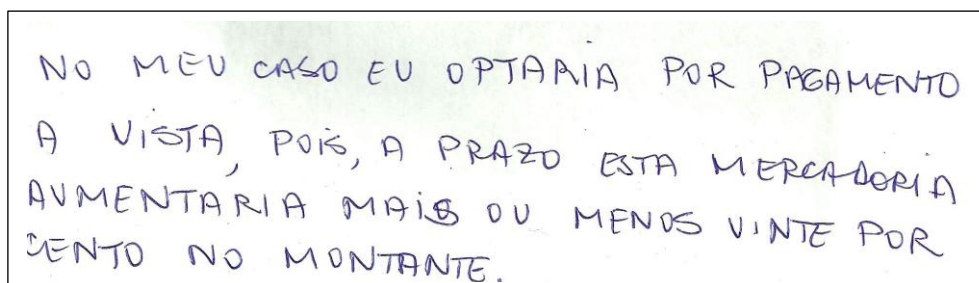 NO MEU CASO EU OPTARIA POR PAGAMENTO
A VISTA, POIS, A PRAZO ESTA MERCADORIA
AUMENTARIA MAIS OU MENOS VINTE POR
CENTO NO MONTANTE.